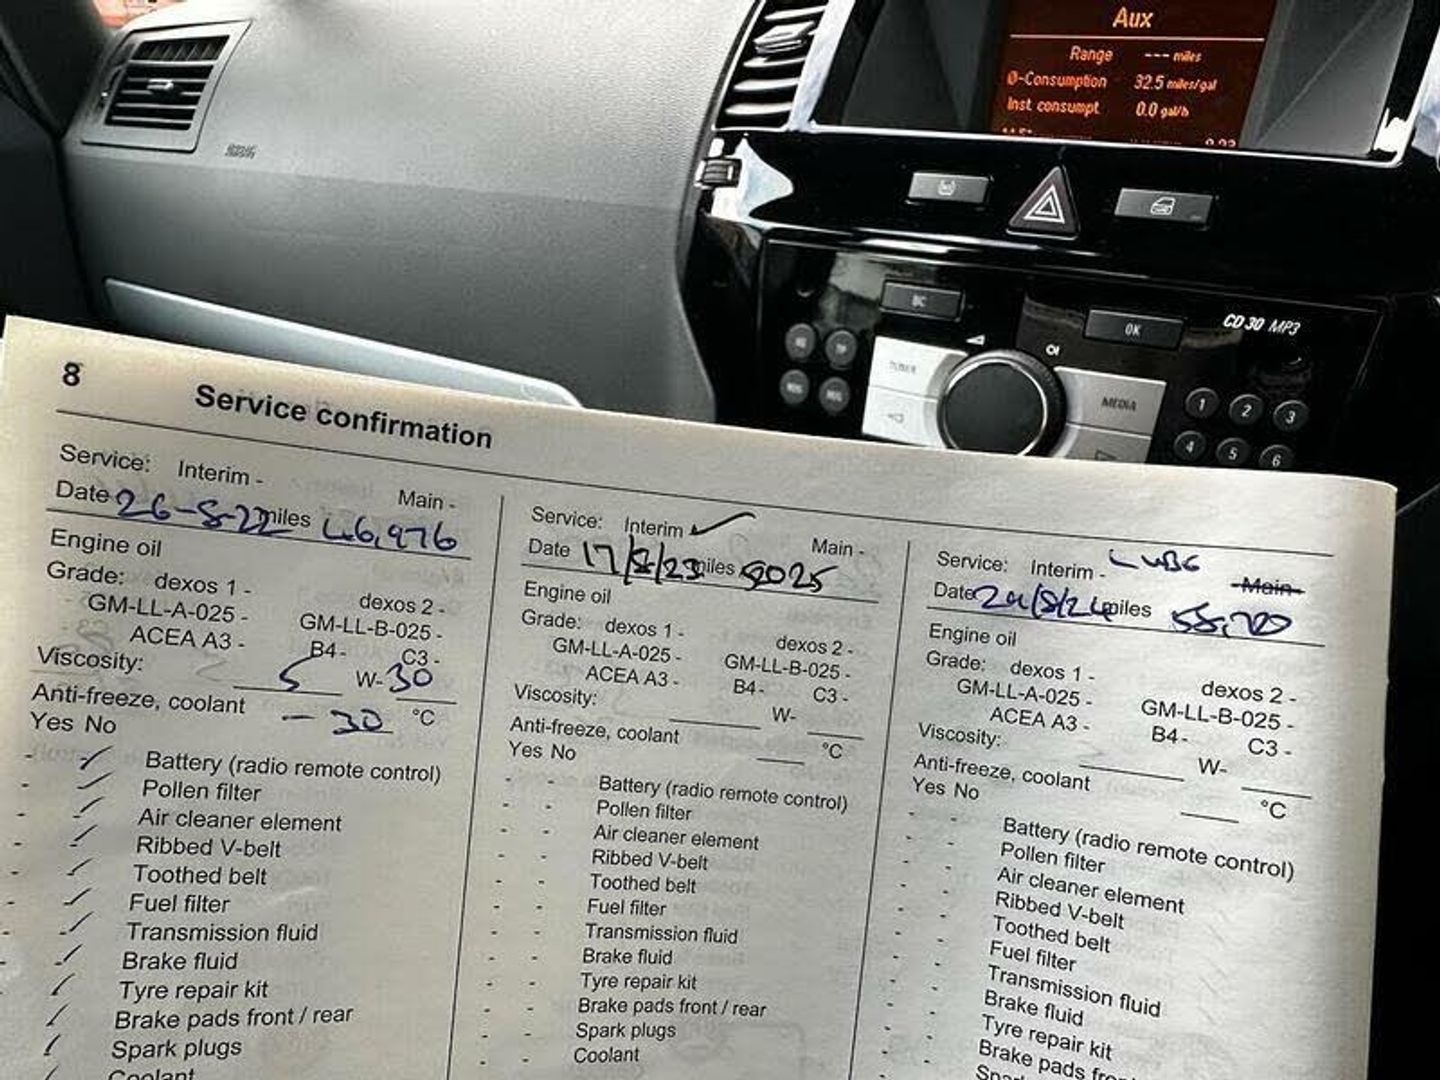 Aux
Range --- miles
Ø-Consumption 32.5 miles/gal
Inst consumpt 0.0 gal/h
BC
OK
CD 30 MP3
TUNER
MEDIA
1 2 3
4 5 6
8 Service confirmation
Service: Interim - Main -
Date 26-8-22 miles 46,976
Engine oil
Grade: dexos 1 - dexos 2 -
GM-LL-A-025 - GM-LL-B-025 -
ACEA A3 - B4 - C3 -
Viscosity: 5 W-30
Anti-freeze, coolant -30 °C
Yes No
- ✓ Battery (radio remote control)
- ✓ Pollen filter
- ✓ Air cleaner element
- ✓ Ribbed V-belt
- ✓ Toothed belt
- ✓ Fuel filter
- ✓ Transmission fluid
- ✓ Brake fluid
- ✓ Tyre repair kit
✓ Brake pads front / rear
✓ Spark plugs
Coolant
Service: Interim ✓ Main -
Date 17/8/23 miles
Engine oil
Grade: dexos 1 - dexos 2 -
GM-LL-A-025 - GM-LL-B-025 -
ACEA A3 - B4 - C3 -
Viscosity: W-
Anti-freeze, coolant °C
Yes No
- - Battery (radio remote control)
- - Pollen filter
- - Air cleaner element
- - Ribbed V-belt
- - Toothed belt
- - Fuel filter
- - Transmission fluid
- - Brake fluid
- - Tyre repair kit
- - Brake pads front / rear
- - Spark plugs
- - Coolant
Service: Interim - Main
Date /8/24 miles 55,700
Engine oil
Grade: dexos 1 - dexos 2 -
GM-LL-A-025 - GM-LL-B-025 -
ACEA A3 - B4 - C3 -
Viscosity: W-
Anti-freeze, coolant °C
Yes No
- - Battery (radio remote control)
- - Pollen filter
- - Air cleaner element
- - Ribbed V-belt
- - Toothed belt
- - Fuel filter
- - Transmission fluid
- - Brake fluid
- - Tyre repair kit
- - Brake pads